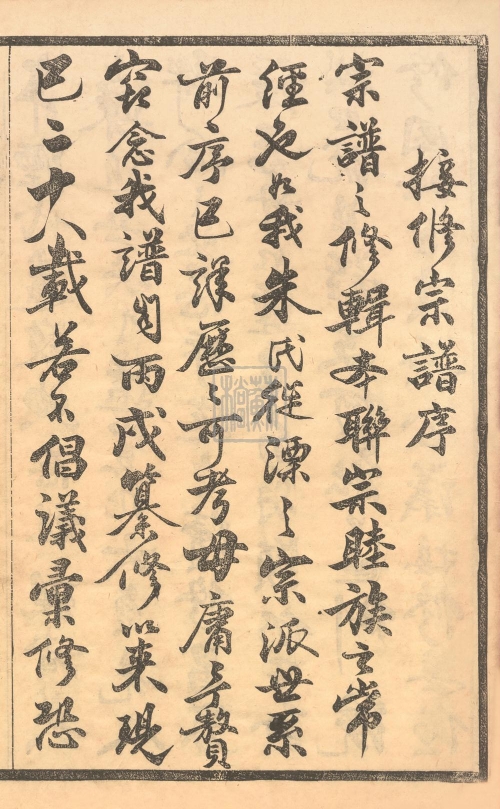 接修宗譜序
宗譜之修輯本聯宗睦族之常
經也如我朱氏從溧之宗派世系
前序已詳歷々可考毋庸贅
竊念我譜自丙戌纂修以來現
已二十八載若不倡議彙修恐